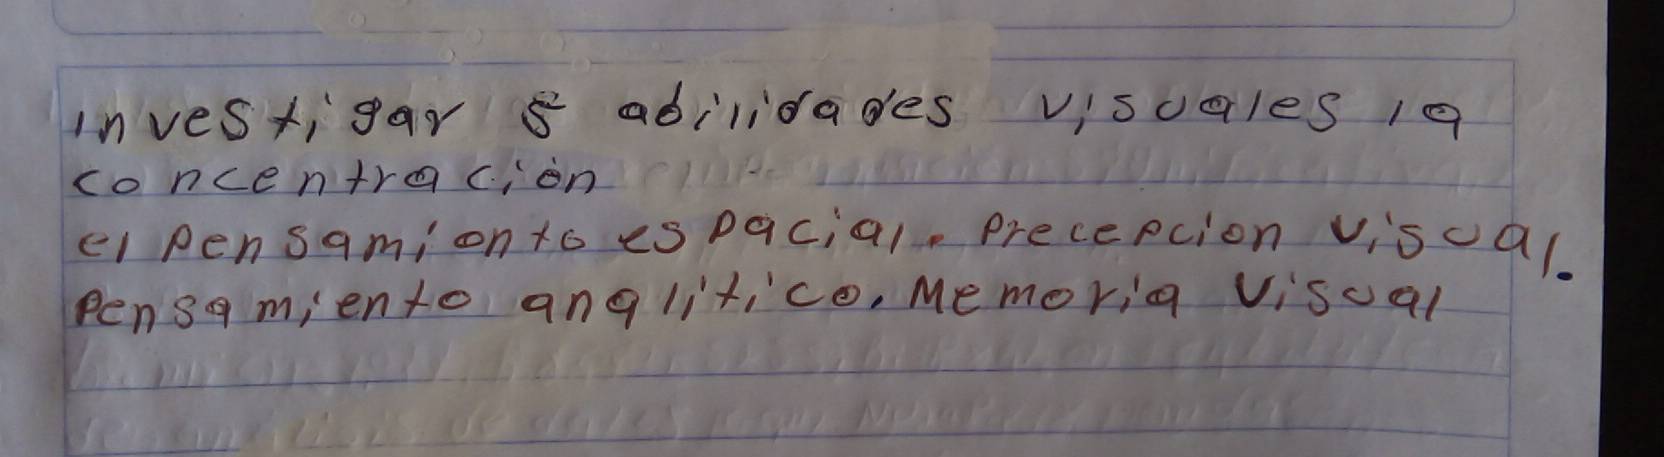 investigar 5 abilidades visuales la
concentración
el pensamionto espacial. Precepcion visual.
Pensamiento analitico. Memoria Visual